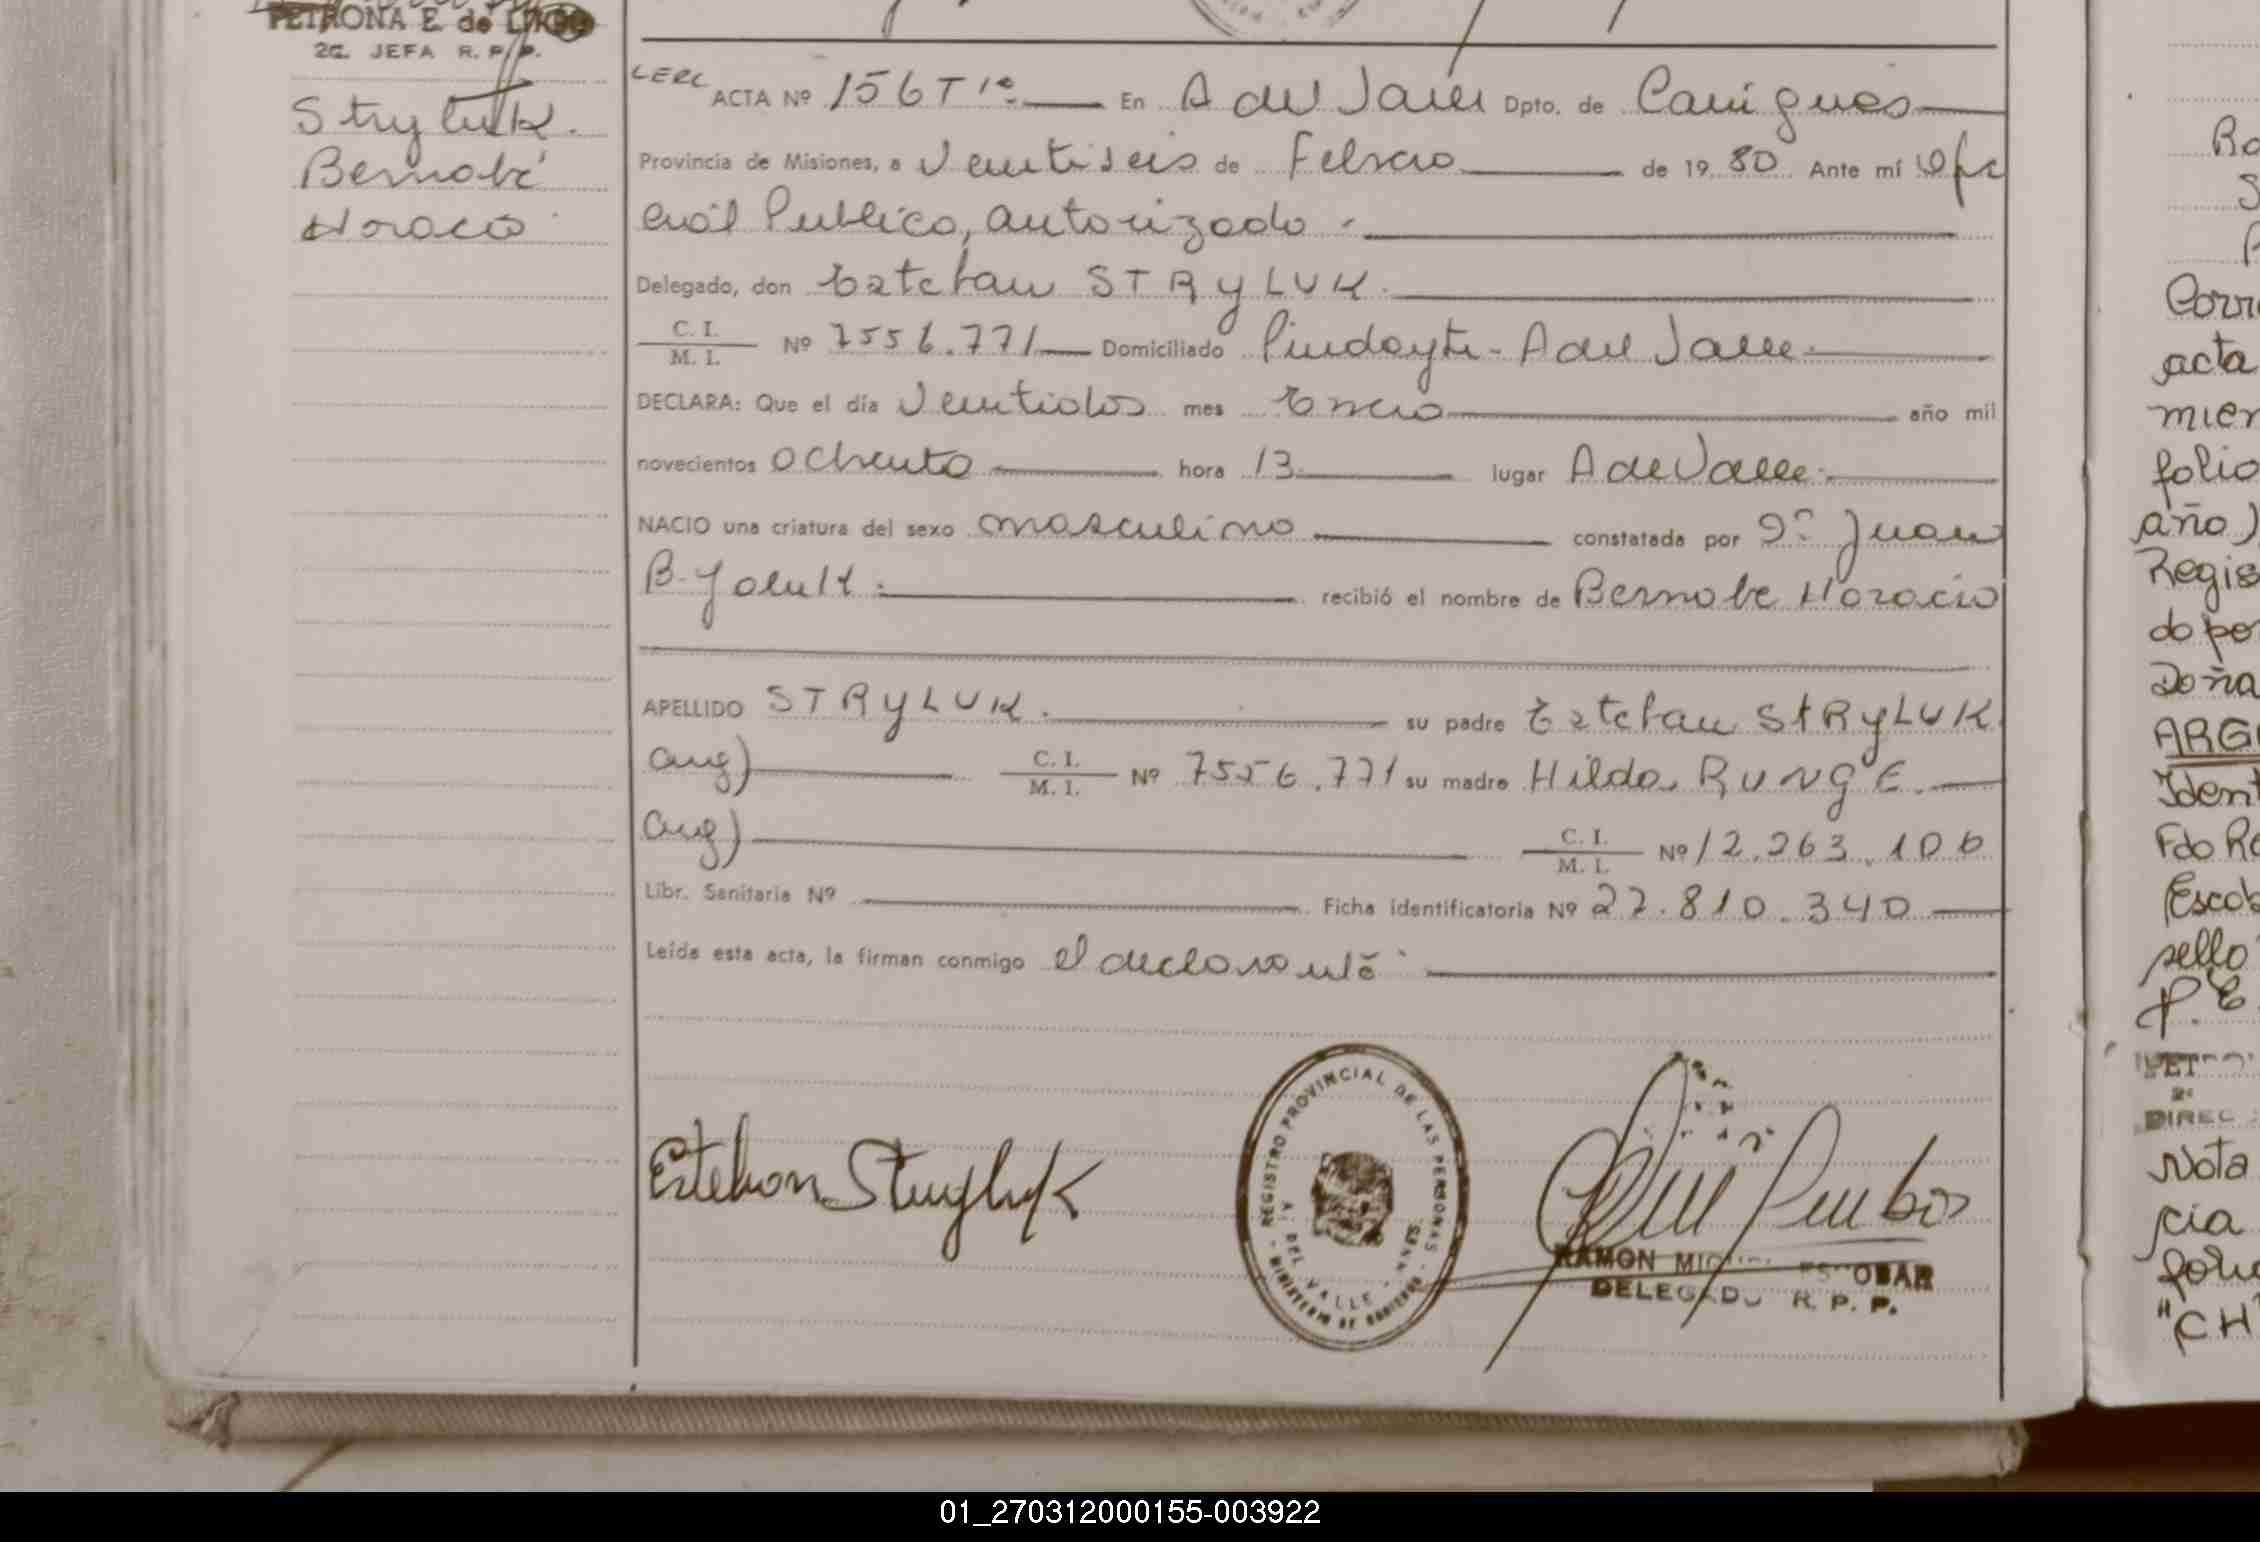 PETRONA E. de
2a. JEFA R. P. P.
Stryluk.
Bernabé
Horacio
ACTA Nº 156 T 1º En A del Valle Dpto. de Cainguas
Provincia de Misiones, a Veintiseis de Febrero de 1980 Ante mí Ofi
cial Publico, autorizado.
Delegado, don Esteban STRYLUK.
C. I.
M. I. Nº 7556.771 Domiciliado Pindayti - A del Valle.
DECLARA: Que el día Veintidos mes Enero año mil
novecientos ochenta hora 13 lugar A del Valle.
NACIO una criatura del sexo masculino constatada por Dº Juan
B. recibió el nombre de Bernabe Horacio
APELLIDO STRYLUK. su padre Esteban STRYLUK.
arg) C. I.
M. I. Nº 7556.771 su madre Hilda RUNGE.
arg) C. I.
M. I. Nº 12.263.106
Libr. Sanitaria Nº Ficha identificatoria Nº 27.810.340
Leída esta acta, la firman conmigo el declarante.
Esteban Stryluk
REGISTRO PROVINCIAL DE LAS PERSONAS
DEL VALLE
MINISTERIO DE GOBIERNO
RAMON MIGUEL ESCOBAR
DELEGADO R. P. P.
Corr
acta
mien
folio
año)
Regis
do por
Doña
ARG
Ident
Fdo Ra
Escob
sello
P. E.
DIREC
Nota
cia
folio
"CH
01_270312000155-003922